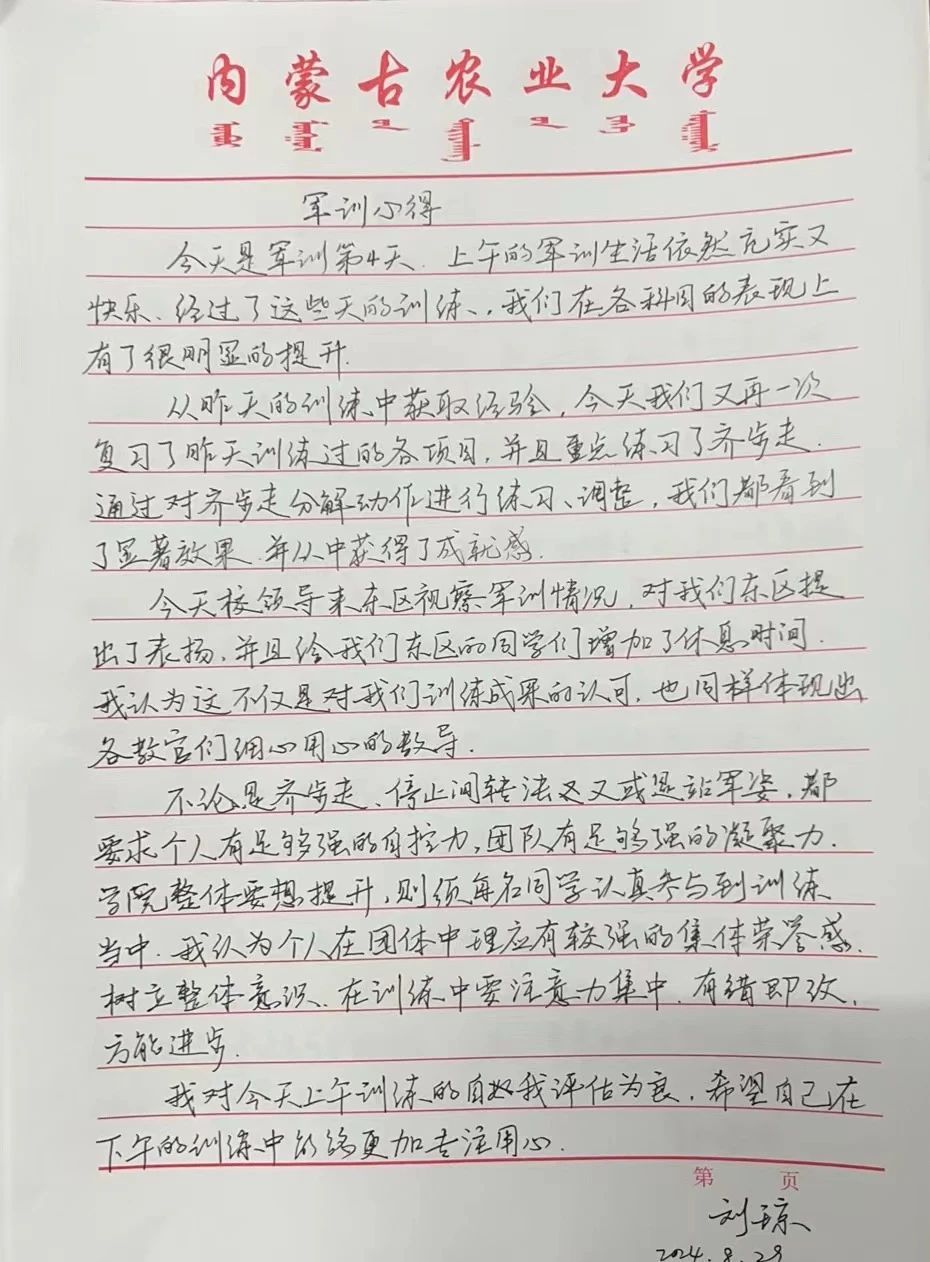 内蒙古农业大学
军训心得
今天是军训第4天.上午的军训生活依然充实又
快乐、经过了这些天的训练,我们在各科目的表现上
有了很明显的提升.
从昨天的训练中获取经验,今天我们又再一次
复习了昨天训练过的各项目,并且重点练习了齐步走.
通过对齐步走分解动作进行练习、调整,我们都看到
了显著效果.并从中获得了成就感.
今天校领导来东区视察军训情况,对我们东区提
出了表扬.并且给我们东区的同学们增加了休息时间.
我认为这不仅是对我们训练成果的认可,也同样体现出
各教官们细心用心的教导.
不论是齐步走、停止间转法又或是站军姿,都
要求个人有足够强的自控力,团队有足够强的凝聚力.
学院整体要想提升,则须每名同学认真参与到训练
当中.我认为个人在团体中理应有较强的集体荣誉感.
树立整体意识.在训练中要注意力集中.有错即改,
方能进步.
我对今天上午训练的自我评估为良.希望自己在
下午的训练中能够更加专注用心.
第 页
刘琼
2024.8.29